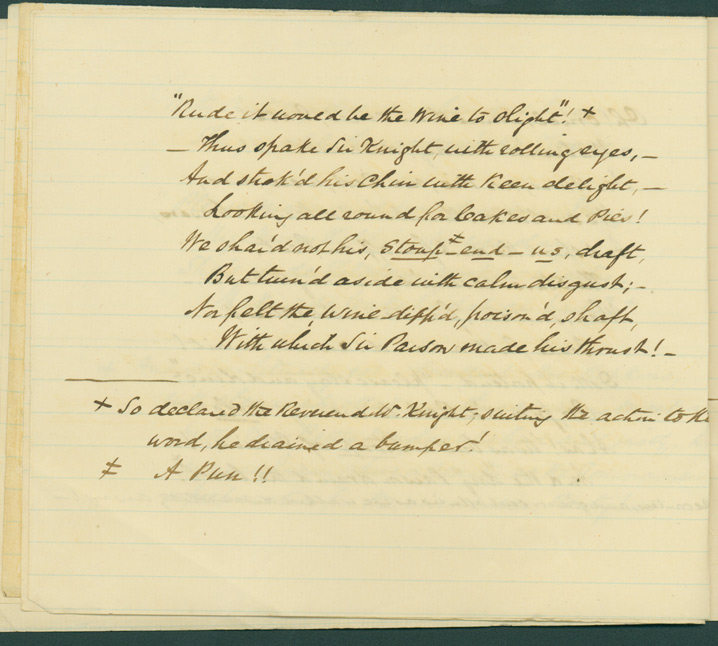 "Rude it would be the Wine to slight"! +
— Thus spake Sir Knight, with rolling eyes, —
And strok'd his Chin with keen delight, —
Looking all round for Cakes and Pies!
We shar'd not his, Stoup ‡ - end - us, draft,
But turn'd aside with calm disgust; —
Nor felt the wine-dipp'd, poison'd, shaft,
With which Sir Parson made his thrust! —
+ So declared the Reverend W. Knight, suiting the action to the
word, he drained a bumper!
‡ A Pun!!